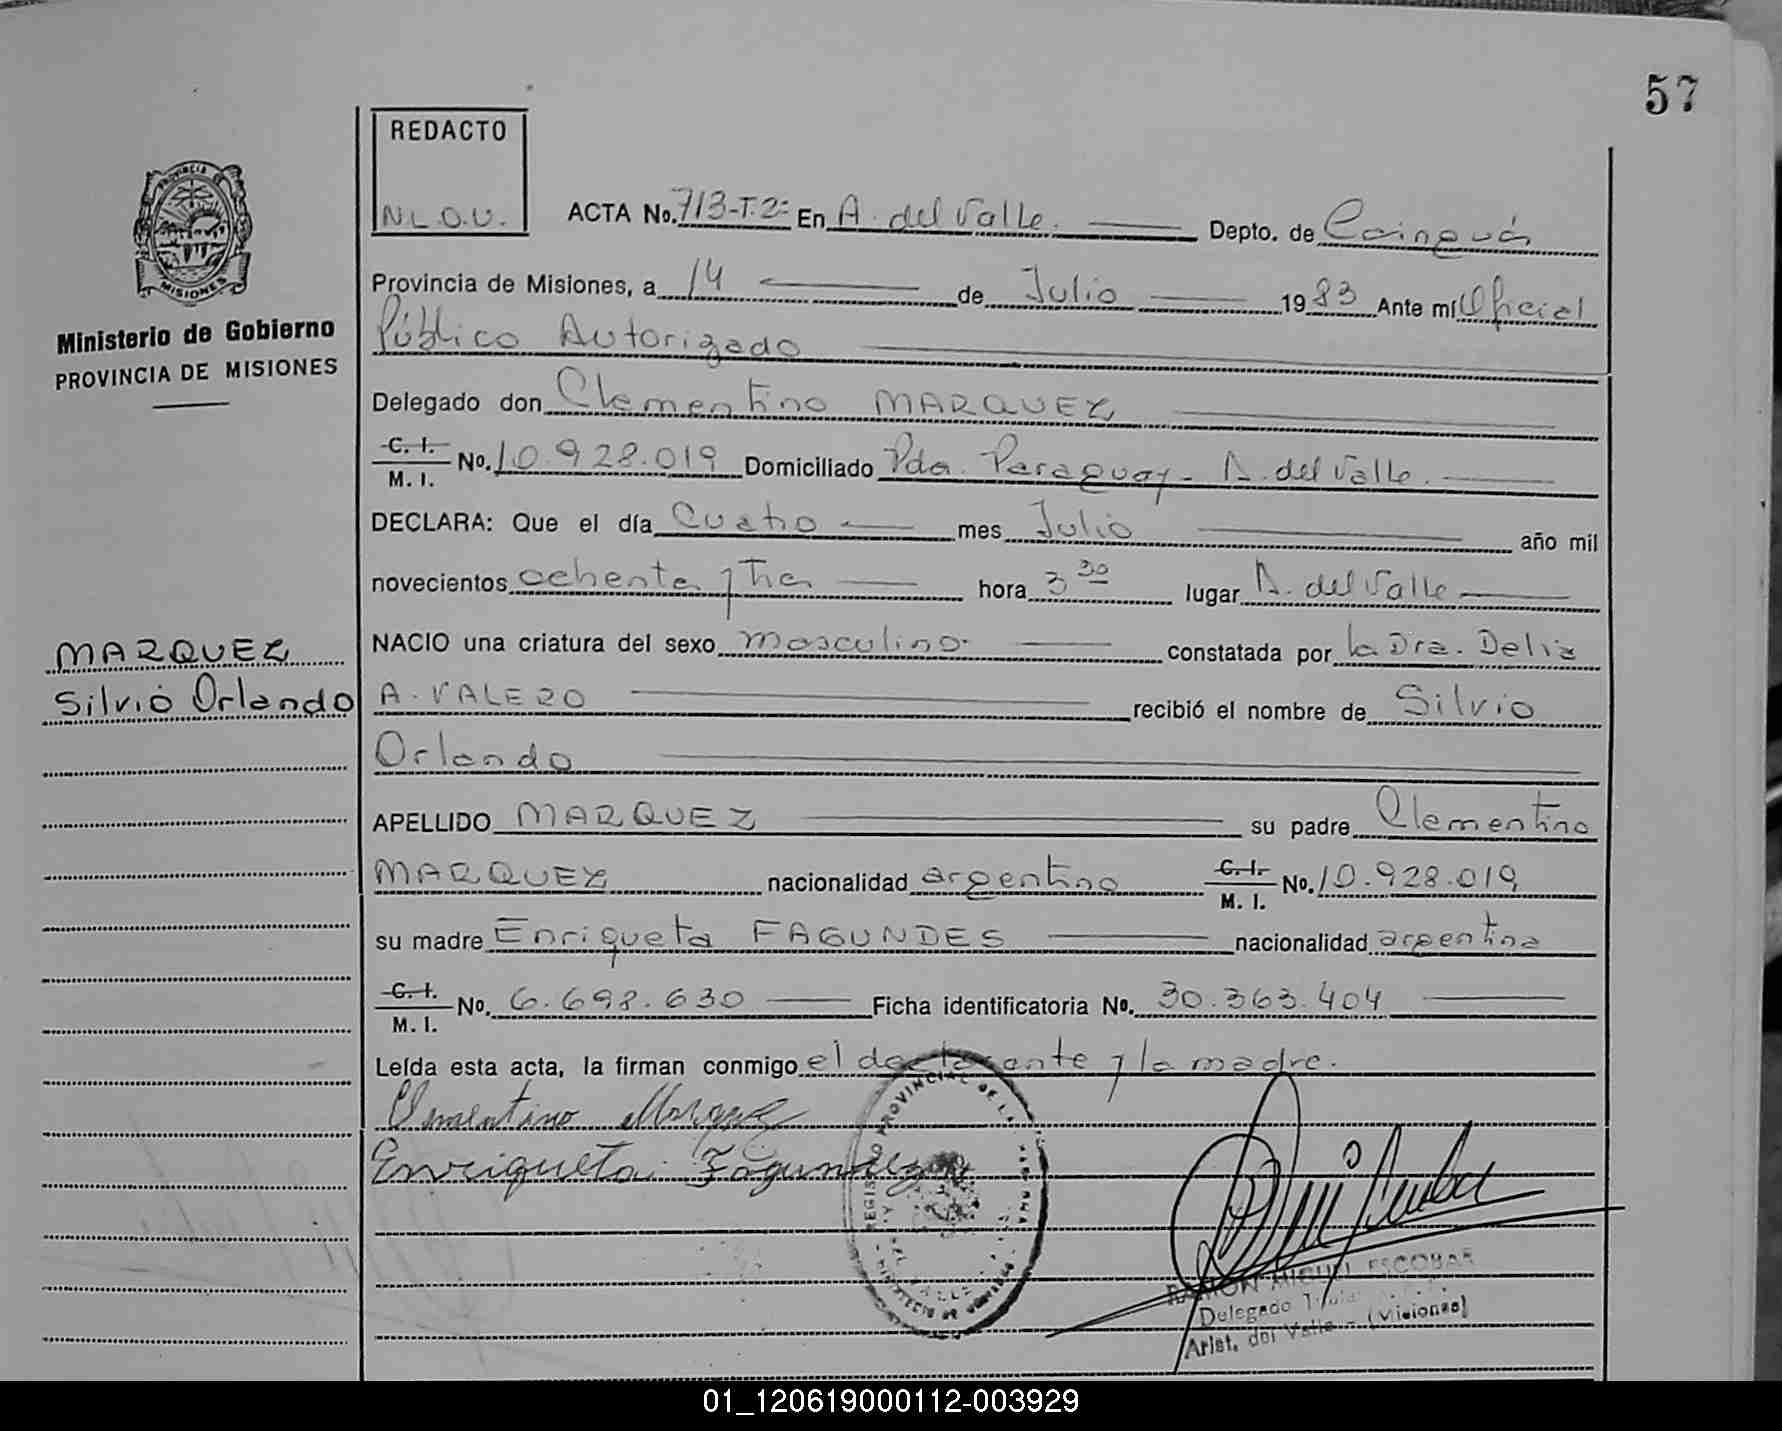 57
REDACTO
N.L.O.V.
PROVINCIA DE
MISIONES
Ministerio de Gobierno
PROVINCIA DE MISIONES
ACTA No. 713-T.2= En A. del Valle. Depto. de Cainguás
Provincia de Misiones, a 14 de Julio 1983 Ante mí Oficial
Público Autorizado
Delegado don Clementino MARQUEZ
C. I. M. I. No. 10.928.019 Domiciliado Pda. Paraguay - A. del Valle.
DECLARA: Que el día Cuatro mes Julio año mil
novecientos ochenta y tres hora 3 30 lugar A. del Valle
NACIO una criatura del sexo masculino constatada por la Dra. Delia
A. VALERO recibió el nombre de Silvio
Orlando
MARQUEZ
Silvio Orlando
APELLIDO MARQUEZ su padre Clementino
MARQUEZ nacionalidad argentino C. I. M. I. No. 10.928.019
su madre Enriqueta FAGUNDES nacionalidad argentina
C. I. M. I. No. 6.698.630 Ficha identificatoria No. 30.363.404
Leída esta acta, la firman conmigo el declarante y la madre.
Clementino Marquez
Enriqueta Fagundez
REGISTRO PROVINCIAL DE LAS PERSONAS
RAMON MIGUEL ESCOBAR
Delegado Titular
Arist. del Valle - (Misiones)
01_120619000112-003929